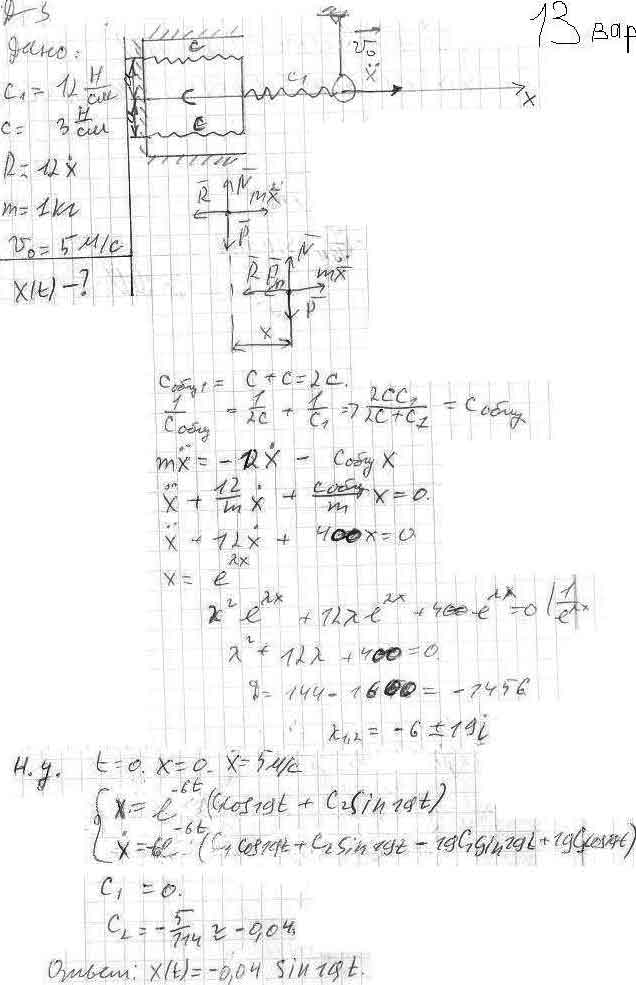 Д-3
13 вар
Дано:
c₁ = 12 Н/см
c = 3 Н/см
R = 12ẋ
m = 1 кг
v₀ = 5 м/с
x(t) - ?
c
c
c
c₁
v̅₀
ẍ
x
R̅ N̅ mẍ
P̅
R̅ F̅ N̅ mẍ
P̅
x
Cобщ₁ = c + c = 2c.
1/Cобщ = 1/2c + 1/c₁ => 2cc₁/2c+c₁ = Cобщ
mẍ = -12ẋ - Cобщ x
ẍ + 12/m ẋ + Cобщ/m x = 0.
ẍ + 12ẋ + 400x = 0
x = e^λx
λ² e^λx + 12λe^λx + 400 e^λx = 0 | 1/e^λx
λ² + 12λ + 400 = 0.
D = 144 - 1600 = -1456
λ₁,₂ = -6 ± 19i
Н.у. t=0. x=0. ẋ=5м/с
x = e^-6t (C₁cos19t + C₂sin19t)
ẋ = -6e^-6t (C₁cos19t + C₂sin19t - 19C₁sin19t + 19C₂cos19t)
C₁ = 0.
C₂ = -5/114 ≈ -0,04.
Ответ: x(t) = -0,04 sin19t.